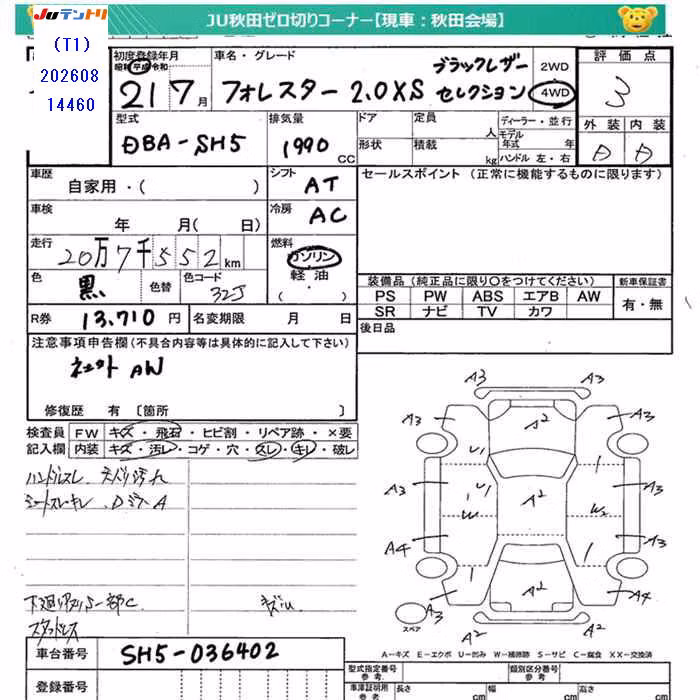 JUテントリ
JU秋田ゼロ切りコーナー【現車：秋田会場】
(T1)
202608
14460
初度登録年月
昭和 平成 令和
21 7月
車名・グレード
ブラックレザー
フォレスター 2.0XS セレクション
2WD
4WD
評価点
3
外装 内装
D D
型式
DBA-SH5
排気量
1990 CC
ドア
定員 人
形状
積載 kg
ディーラー・並行
モデル
年式 年
ハンドル 左・右
車歴
自家用・( )
シフト
AT
セールスポイント (正常に機能するものに限ります)
車検
年 月( 日)
冷房
AC
走行
20万7千552km
燃料
ガソリン
軽油
( ・ )
色
黒
色替
色コード
32J
装備品 (純正品に限り〇をつけてください)
新車保証書
PS PW ABS エアB AW
SR ナビ TV カワ
有・無
R券 13,710円
名変期限 月 日
後日品
注意事項申告欄 (不具合内容等は具体的に記入して下さい)
AW
修復歴 有 [箇所 ]
検査員
記入欄
FW キズ・飛石・ヒビ割・リペア跡・×要
内装 キズ・汚レ・コゲ・穴・スレ・キレ・破レ
ハンドルスレ 天バリ汚れ
シートスレ・キレ
スタッドレス
A3 A3
A3 A2 A3
U1
A3 U1 A2 A3
W W2
A4 A3
A2
A3 A4
A2
スペア
A-キズ E-エクボ U-凹み W-補修跡 S-サビ C-腐食 XX-交換済
車台番号
SH5-036402
登録番号
型式指定番号
参考
類別区分番号
参考
車庫証明用
参考
長さ cm
幅 cm
高さ cm